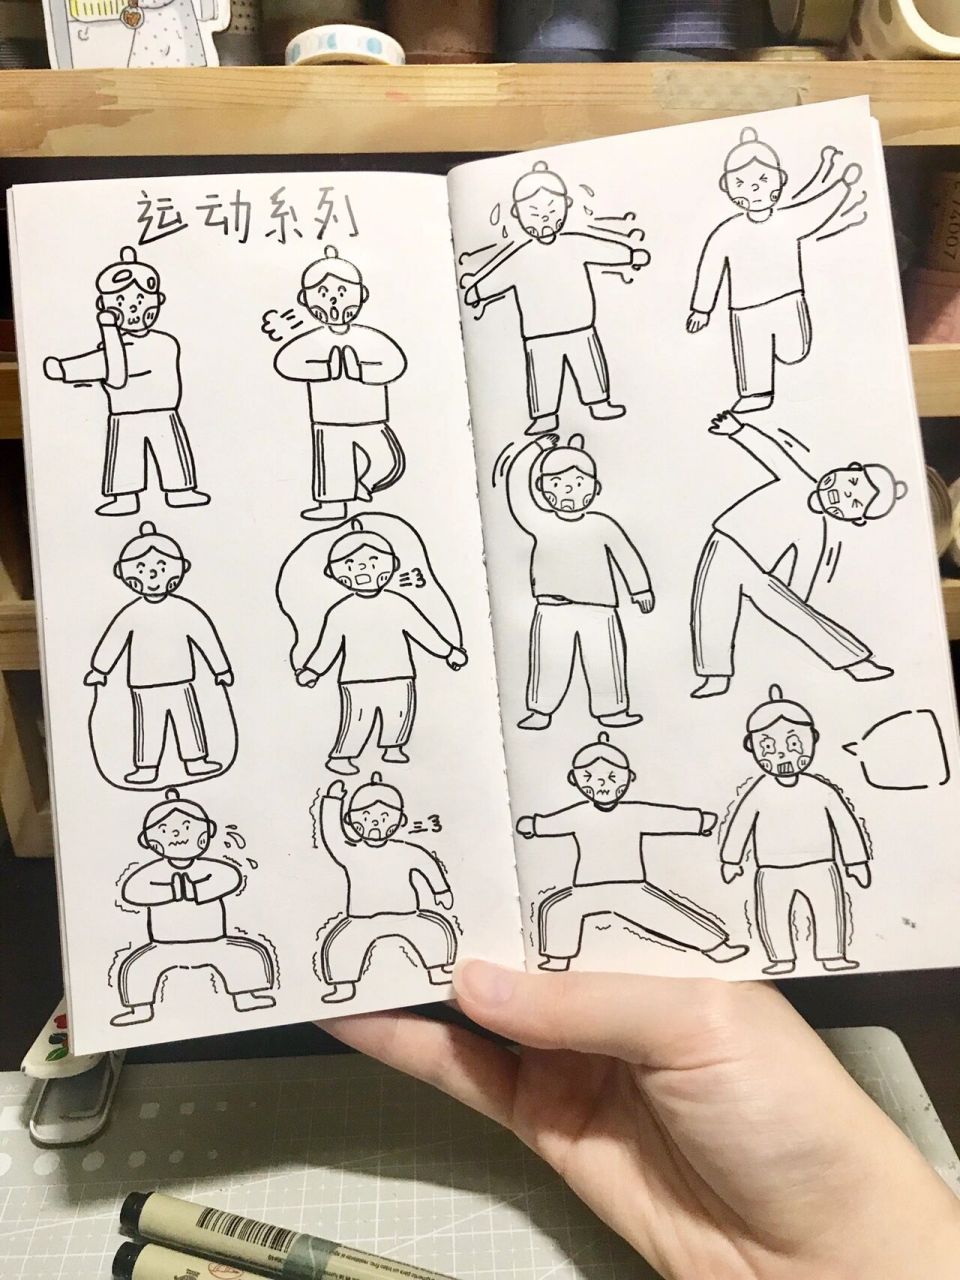 运动系列